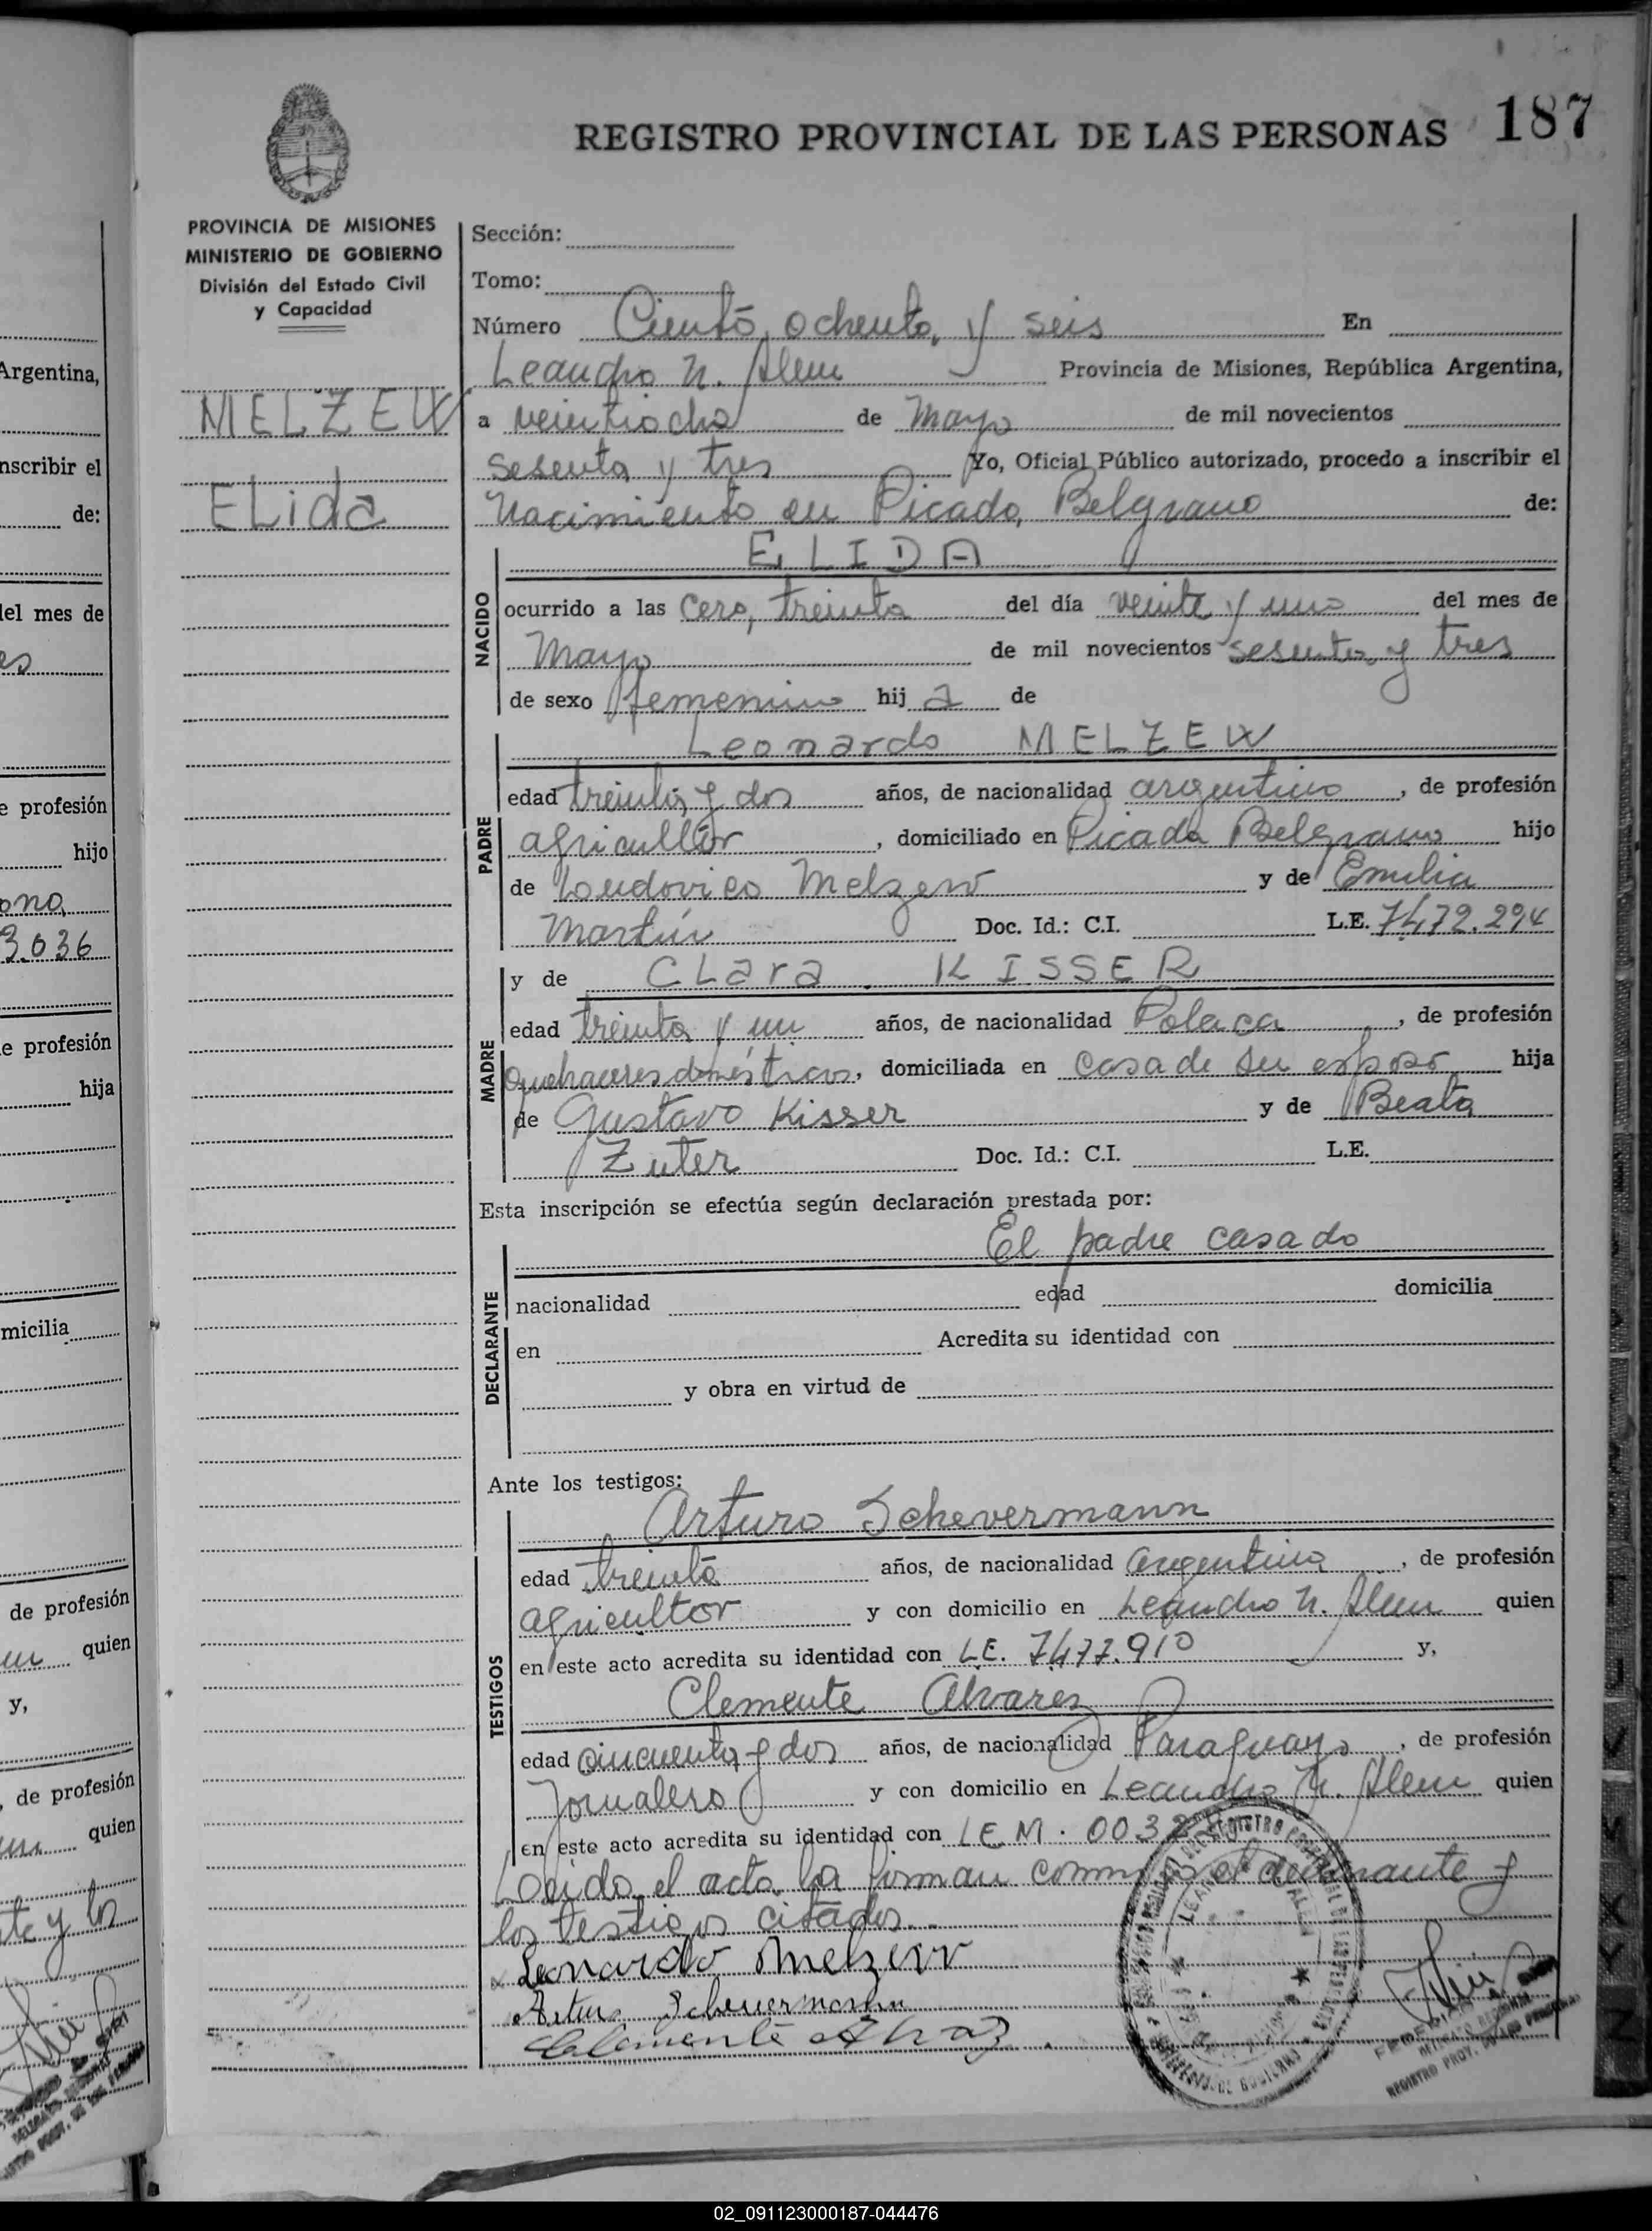 187
REGISTRO PROVINCIAL DE LAS PERSONAS
PROVINCIA DE MISIONES
MINISTERIO DE GOBIERNO
División del Estado Civil
y Capacidad
MELZEW
ELida
Sección:
Tomo:
Número Ciento ochenta y seis En
Leandro N. Alem Provincia de Misiones, República Argentina,
a veintiocho de Mayo de mil novecientos
sesenta y tres Yo, Oficial Público autorizado, procedo a inscribir el
Nacimiento en Picada Belgrano de:
NACIDO
ELIDA
ocurrido a las cero, treinta del día veinte y uno del mes de
Mayo de mil novecientos sesenta y tres
de sexo femenino hij a de
PADRE
Leonardo MELZEW
edad treinta y dos años, de nacionalidad argentino, de profesión
agricultor, domiciliado en Picada Belgrano hijo
de Loudovico Melzew y de Emilia
Martin Doc. Id.: C.I. L.E. 7472.294
MADRE
y de CLara KISSER
edad treinta y un años, de nacionalidad Polaca, de profesión
quehaceres domésticos, domiciliada en casa de su esposo hija
de Gustavo Kisser y de Beata
Zuter Doc. Id.: C.I. L.E.
Esta inscripción se efectúa según declaración prestada por:
DECLARANTE
El padre casado
nacionalidad edad domicilia
en Acredita su identidad con
y obra en virtud de
Ante los testigos:
TESTIGOS
Arturo Schevermann
edad treinta años, de nacionalidad argentina, de profesión
agricultor y con domicilio en Leandro N. Alem quien
en este acto acredita su identidad con L.E. 7477.910 y,
Clemente Alvarez
edad cincuenta y dos años, de nacionalidad Paraguayo, de profesión
Jornalero y con domicilio en Leandro N. Alem quien
en este acto acredita su identidad con LEM. 0032
Leida el acta la firman conmigo el declarante y
los testigos citados.
Leonardo Melzew
Arturo Schevermann
Clemente
REGISTRO PROV. DE LAS PERSONAS
Argentina,
inscribir el
de:
del mes de
de profesión
hijo
3.036
de profesión
hija
micilia
de profesión
quien
y,
de profesión
quien
te y los
02_091123000187-044476